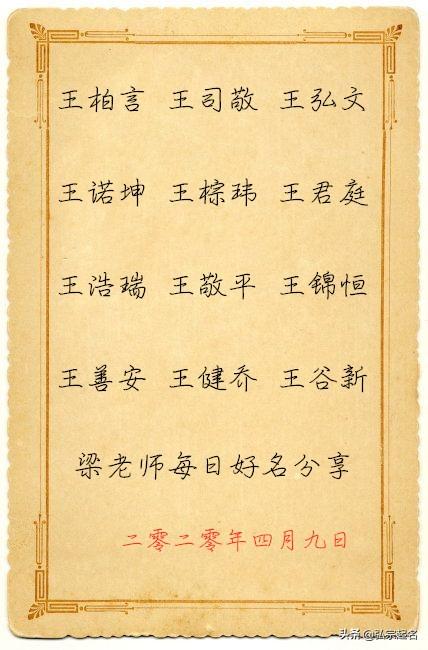 王柏言 王司敬 王弘文
王诺坤 王棕玮 王君庭
王浩瑞 王敬平 王锦恒
王善安 王健乔 王谷新
梁老师每日好名分享
二零二零年四月九日
头条 @弘宗起名